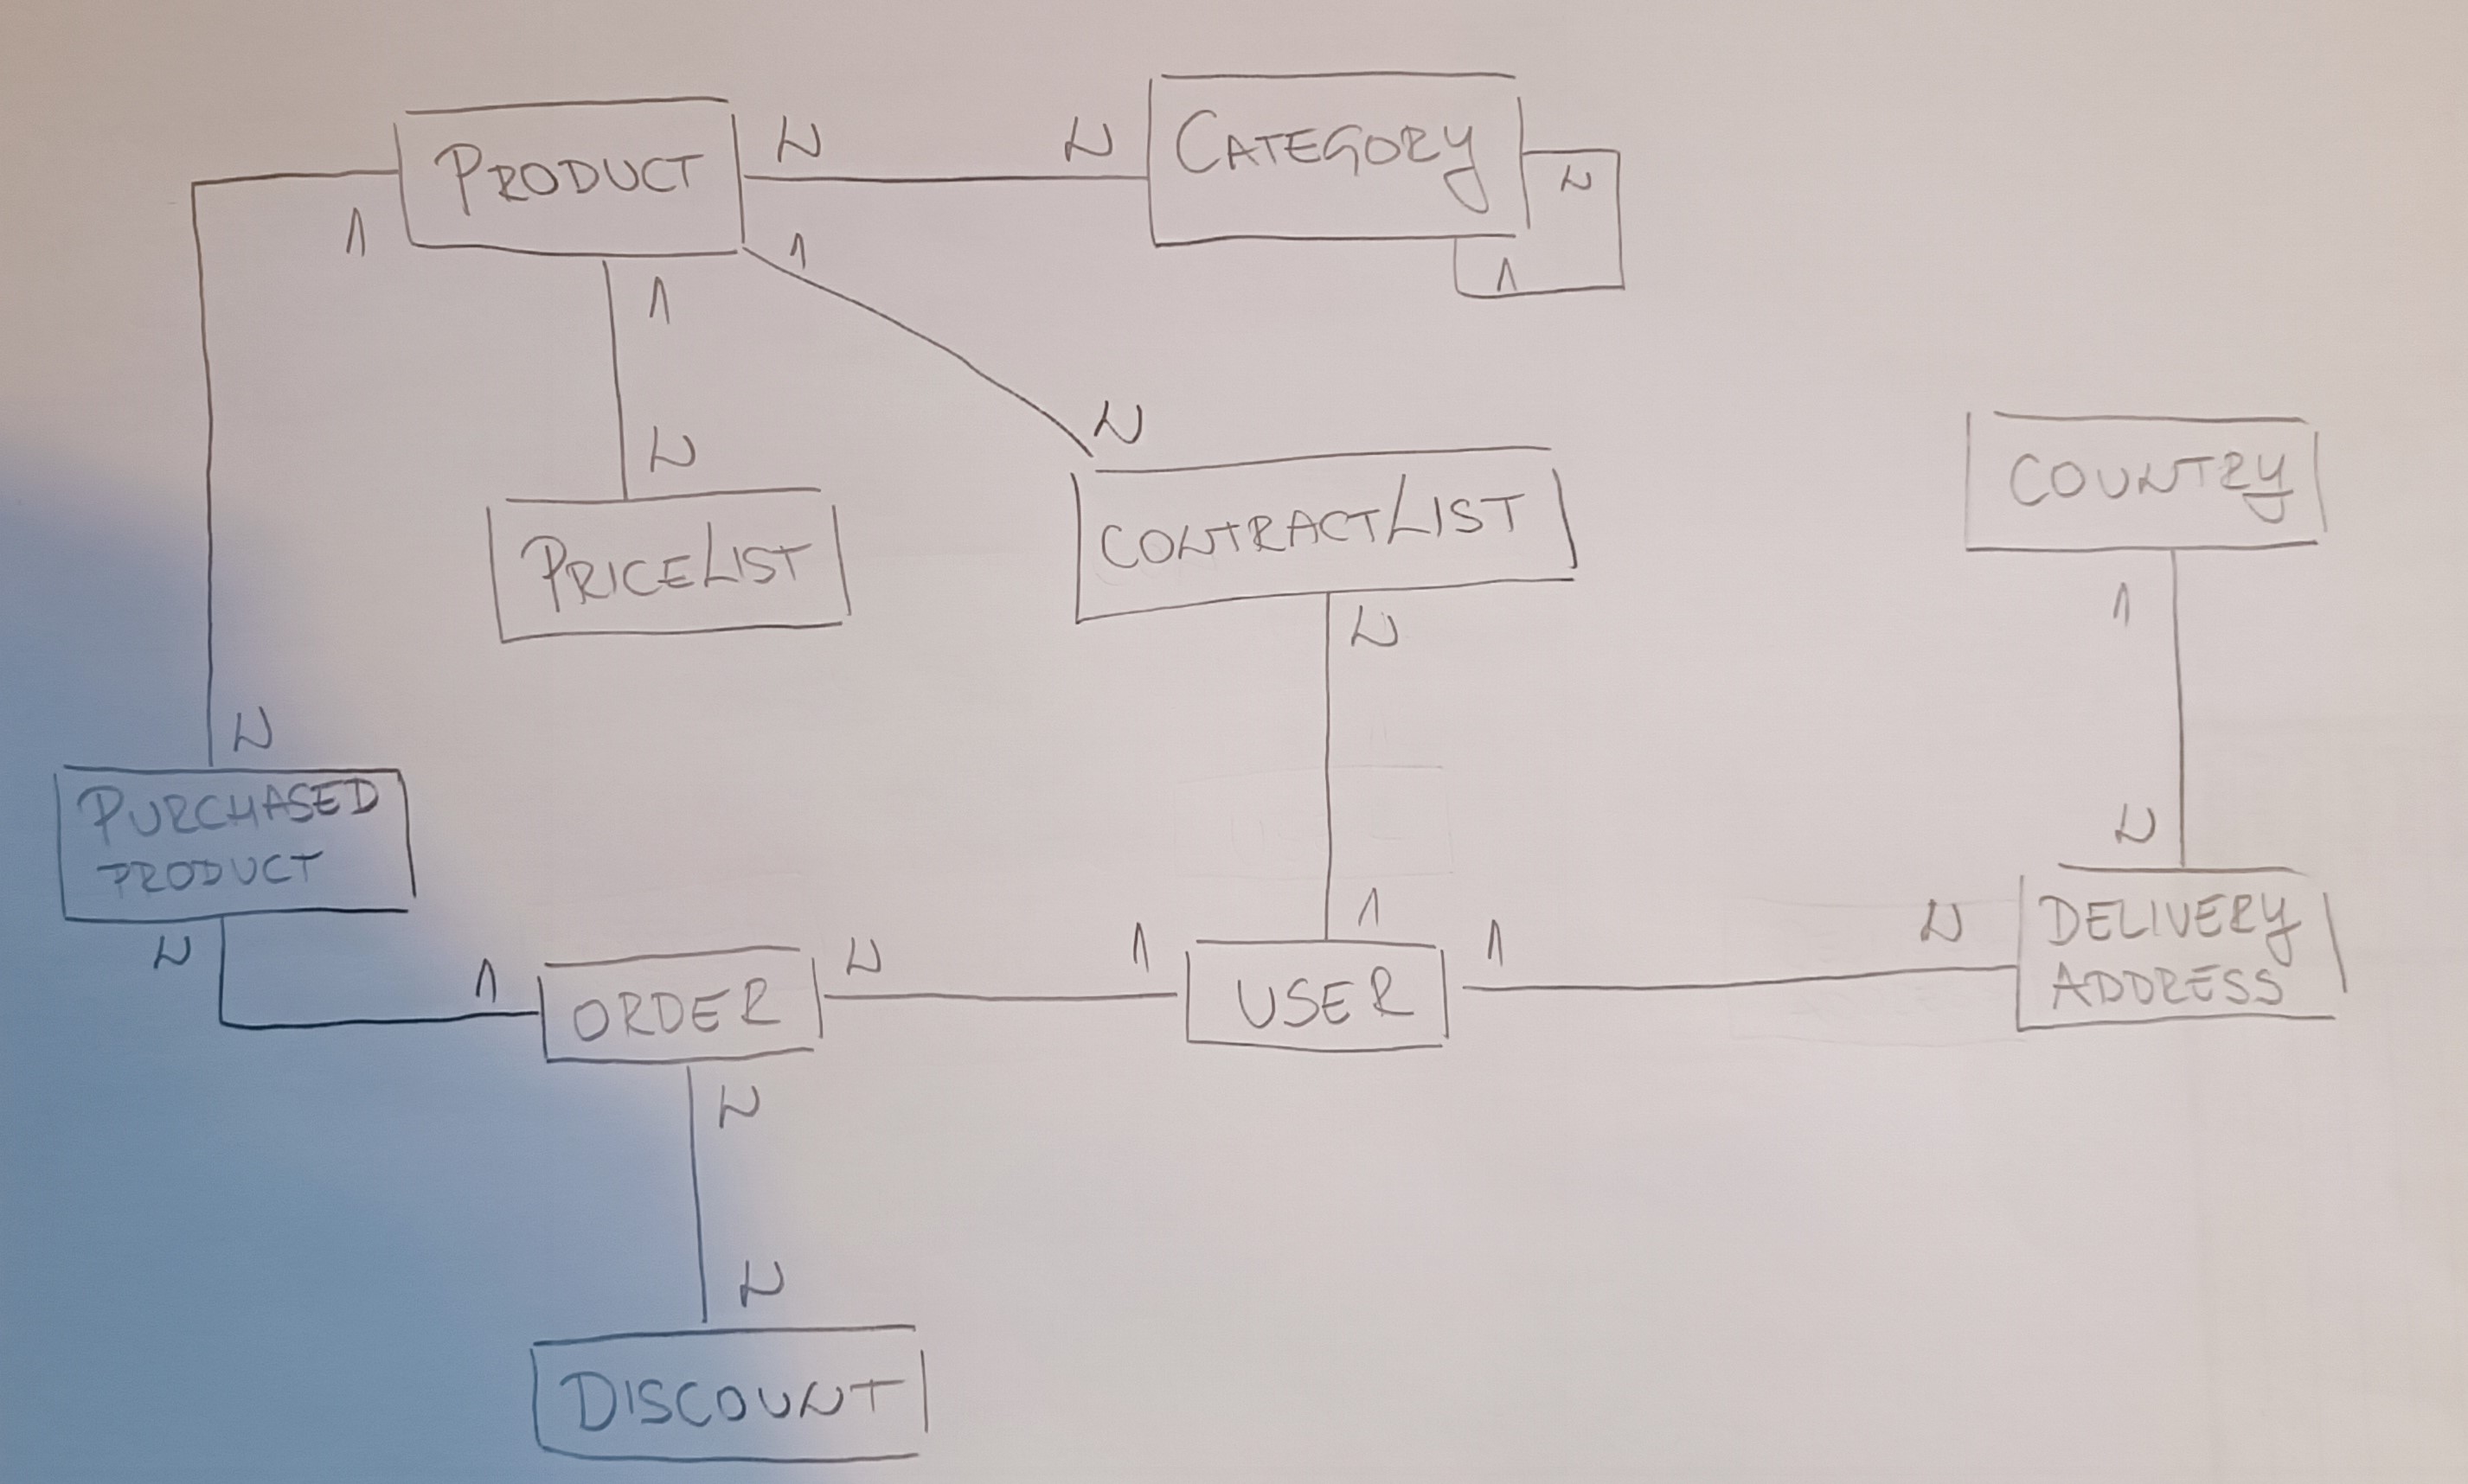 PRODUCT
N
N
CATEGORY
N
1
1
1
1
N
N
PRICELIST
CONTRACTLIST
COUNTRY
N
1
N
PURCHASED
PRODUCT
N
N
1
ORDER
N
1
1
USER
1
N
DELIVERY
ADDRESS
N
N
DISCOUNT